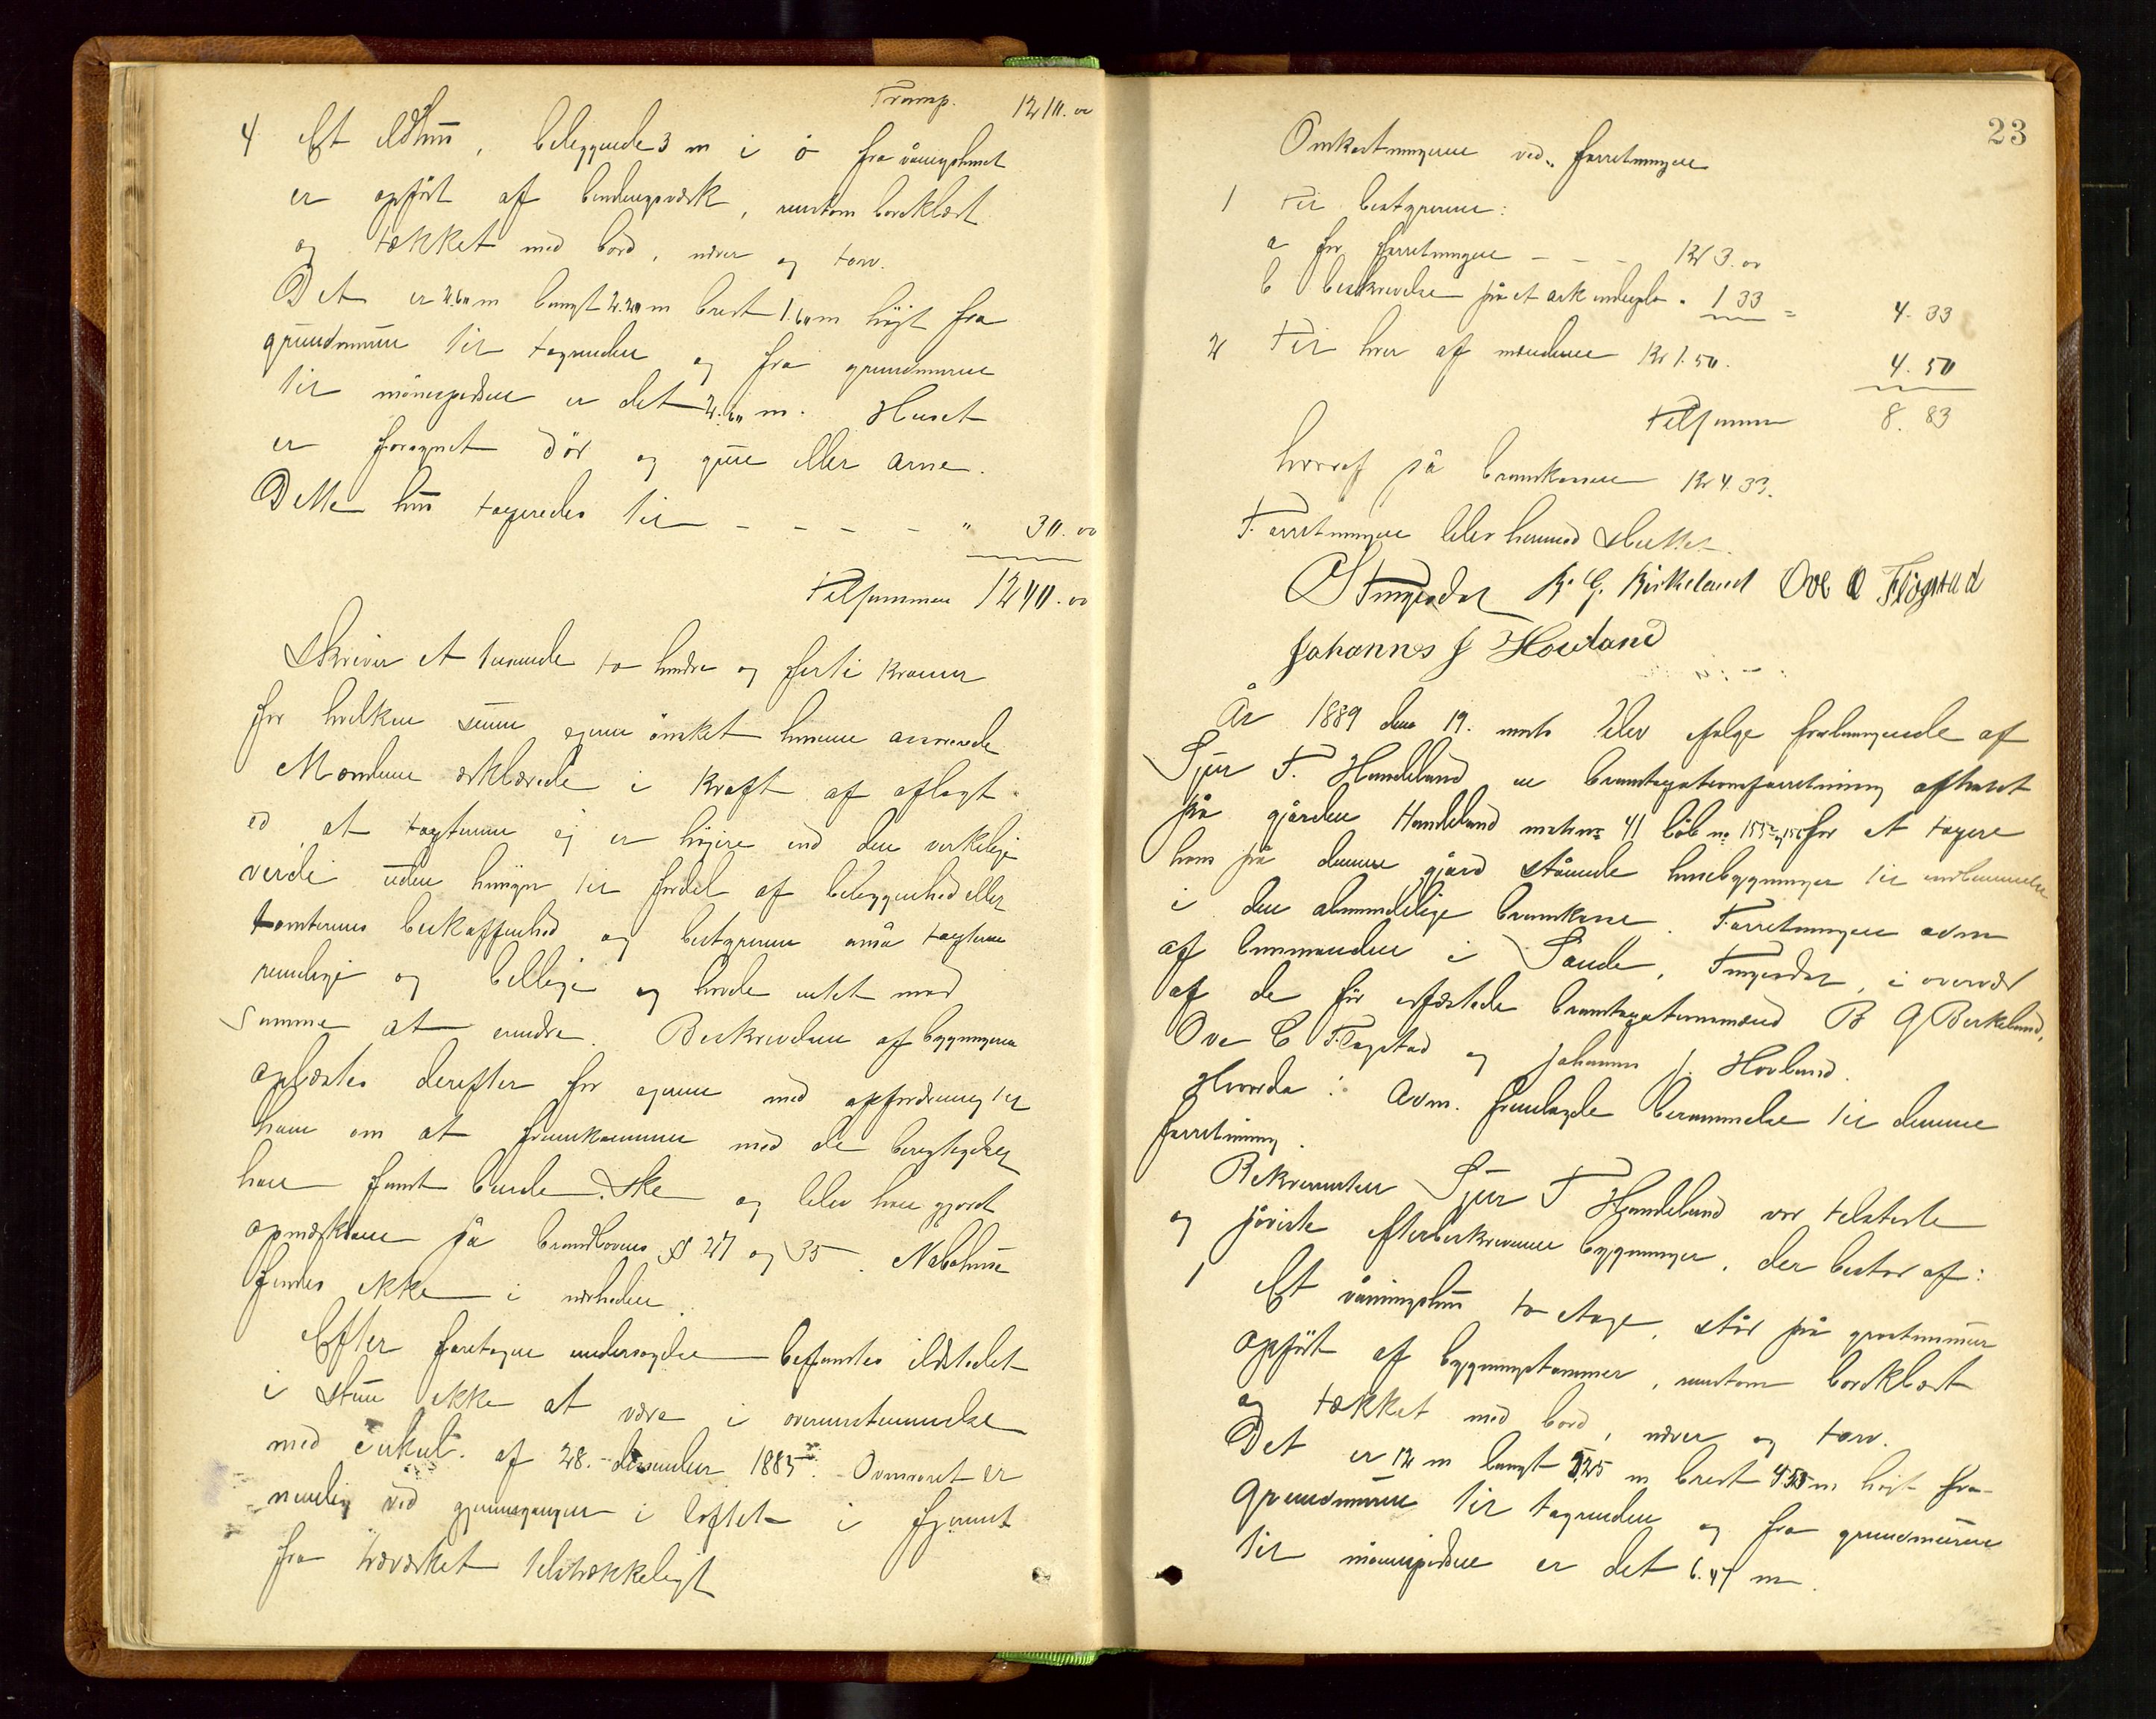 Transp. 1210.00
4 Et ildhus, beliggende 3 m i ø fra våningshuset
er opført af bindingsværk, rundtom bordklædt
og tækket med bord, næver og torv.
Det er 2.60 m langt 2.20 m bredt 1.60 m højt fra
grundmuren til tagrenden og fra grundmuren
til mønespidsen er det 2.60 m. Huset
er forsynet dør og grue eller arne.
Dette hus taxeredes til - - - - " 30.00
Tilsammen 1240.00
skriver et tusinde to hundre og firti kroner
for hvilken sum eieren ønsket husene assurerede
Mændene erklærede i kraft af aflagt
ed at taxterne ej er højere end den verkelige
verdi uden hensyn til fordel af beliggenhed eller
tomternes beskaffenhed og bestyreren anså taxterne
rimelige og billige og havde intet med
samme at erindre. Beskrivelsen af bygningerne
oplæstes derefter for eieren med opfordring til
ham om at fremkomme med de berigtigelser
han fandt burde ske og blev han gjort
opmærksom på brandlovens § 27 og 35. Nabohuse
findes ikke i nærheden.
Efter foretagen undersøgelse befandtes ildstedet
i stuen ikke at være i overensstemmelse
med cirkul. af 28. desember 1885. Ovnsrøret er
nemlig ved gjennemgangen i loftet i fjernet
fra træværket tilstrækkeligt
23
Omkostningerne ved forretningen
1 Til bestyreren:
a for forretningen - - - Kr 3.00
b beskrivelse på et ark 1 33 = 4. 33
2 Til hver af mændene Kr 1.50. 4. 50
Tilsammen 8. 83
hvoraf på brandkassen Kr 4.33.
Forretningen blev hermed sluttet.
B. G. Birkeland Ove O Fløgstad
Johannes J Hovland
År 1889 den 19. marts blev ifølge forlangende af
Sjur T. Handeland en brandtaxationsforretning afholdt
på gården Handeland matr no 41 løb no 155 og 156 for at taxere
hans på denne gård stående husebygninger til indlemmelse
i den almindelige brandkasse. Forretningen adm
af lensmanden i Sande, i overvær
af de før opfæstede brandtaxationsmænd B G Birkeland,
Ove O Fløgstad og Johannes J. Hovland.
Hvorda: Adm. fremlagde berammelse til denne
forretning.
Rekvirenten Sjur T Handeland var tilstede
og påviste efterbeskrevne bygninger, der bestod af:
1 Et våningshus to etage, står på gråstensmur
opført af bygningstømmer, rundtom bordklædt
og tækket med bord, næver og torv.
Det er 12 m langt 5.25 m bredt 4.55 m højt fra
grundmuren til tagrenden og fra grundmuren
til mønespidsen er det 6.47 m.